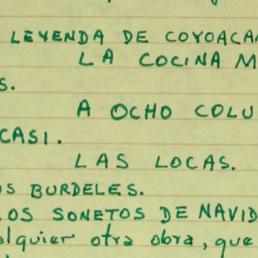 LEYENDA DE COYOACA
LA COCINA M
S.
A OCHO COLU
CASI.
LAS LOCAS.
OS BURDELES.
LOS SONETOS DE NAVID
alquier otra obra, que